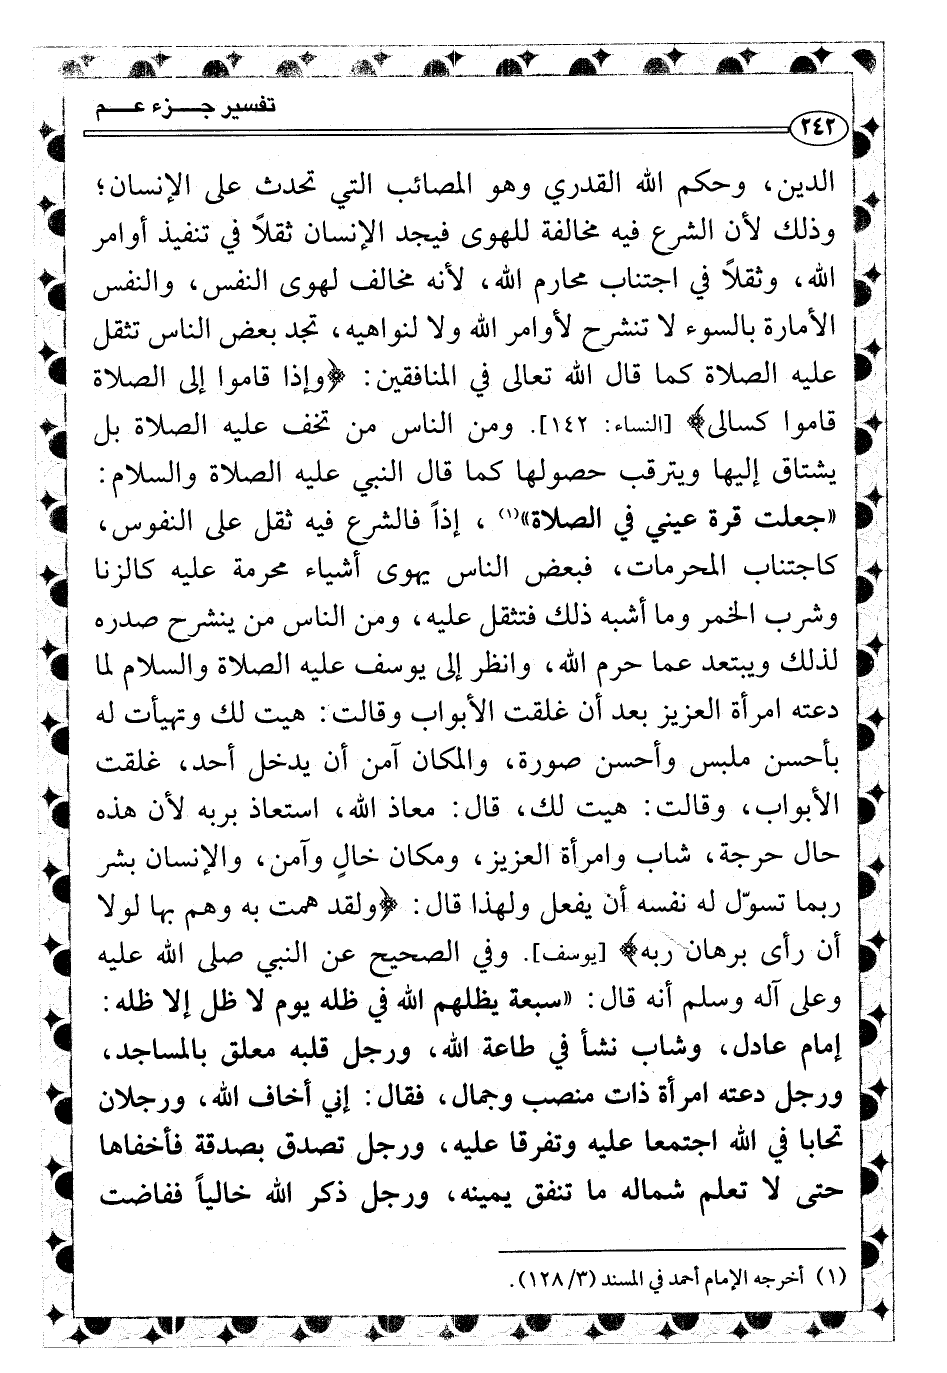 تفسير جـــزء عــم
٢٤٢
الدين، وحكم الله القدري وهو المصائب التي تحدث على الإنسان؛
وذلك لأن الشرع فيه مخالفة للهوى فيجد الإنسان ثقلاً في تنفيذ أوامر
الله، وثقلاً في اجتناب محارم الله، لأنه مخالف لهوى النفس، والنفس
الأمارة بالسوء لا تنشرح لأوامر الله ولا لنواهيه، تجد بعض الناس تثقل
عليه الصلاة كما قال الله تعالى في المنافقين: ﴿وإذا قاموا إلى الصلاة
قاموا كسالى﴾ [النساء: ١٤٢]. ومن الناس من تخف عليه الصلاة بل
يشتاق إليها ويترقب حصولها كما قال النبي عليه الصلاة والسلام:
«جعلت قرة عيني في الصلاة»(١) ، إذاً فالشرع فيه ثقل على النفوس،
كاجتناب المحرمات، فبعض الناس يهوى أشياء محرمة عليه كالزنا
وشرب الخمر وما أشبه ذلك فتثقل عليه، ومن الناس من ينشرح صدره
لذلك ويبتعد عما حرم الله، وانظر إلى يوسف عليه الصلاة والسلام لما
دعته امرأة العزيز بعد أن غلقت الأبواب وقالت: هيت لك وتهيأت له
بأحسن ملبس وأحسن صورة، والمكان آمن أن يدخل أحد، غلقت
الأبواب، وقالت: هيت لك، قال: معاذ الله، استعاذ بربه لأن هذه
حال حرجة، شاب وامرأة العزيز، ومكان خالٍ وآمن، والإنسان بشر
ربما تسوّل له نفسه أن يفعل ولهذا قال: ﴿ولقد همت به وهم بها لولا
أن رأى برهان ربه﴾ [يوسف]. وفي الصحيح عن النبي صلى الله عليه
وعلى آله وسلم أنه قال: «سبعة يظلهم الله في ظله يوم لا ظل إلا ظله:
إمام عادل، وشاب نشأ في طاعة الله، ورجل قلبه معلق بالمساجد،
ورجل دعته امرأة ذات منصب وجمال، فقال: إني أخاف الله، ورجلان
تحابا في الله اجتمعا عليه وتفرقا عليه، ورجل تصدق بصدقة فأخفاها
حتى لا تعلم شماله ما تنفق يمينه، ورجل ذكر الله خالياً ففاضت
(١) أخرجه الإمام أحمد في المسند (١٢٨/٣).